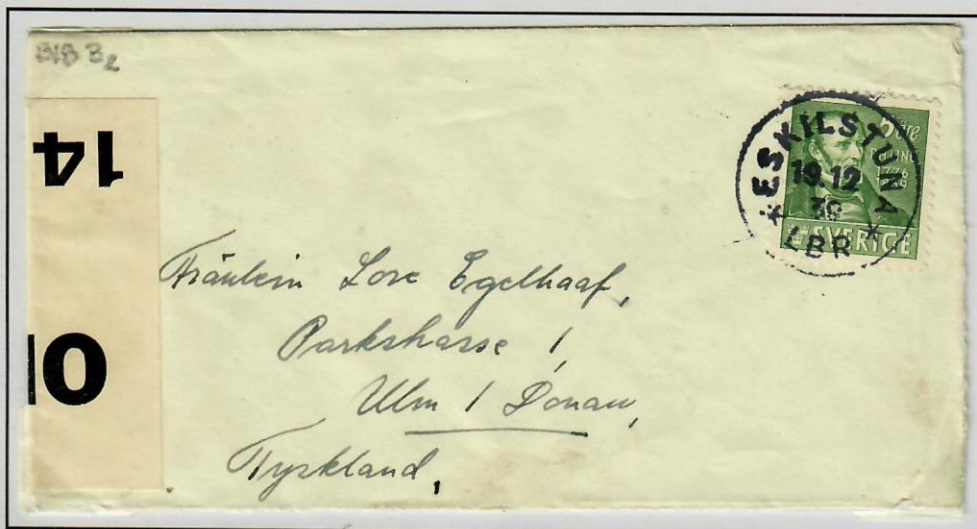 318 B2
14
ESKILSTUNA
19.12
39
LBR
5 öre
PHLING
1776
SVERIGE
Fräulein Lore Egelhaaf,
Parkstrasse 1,
Ulm / Donau,
Tyskland,